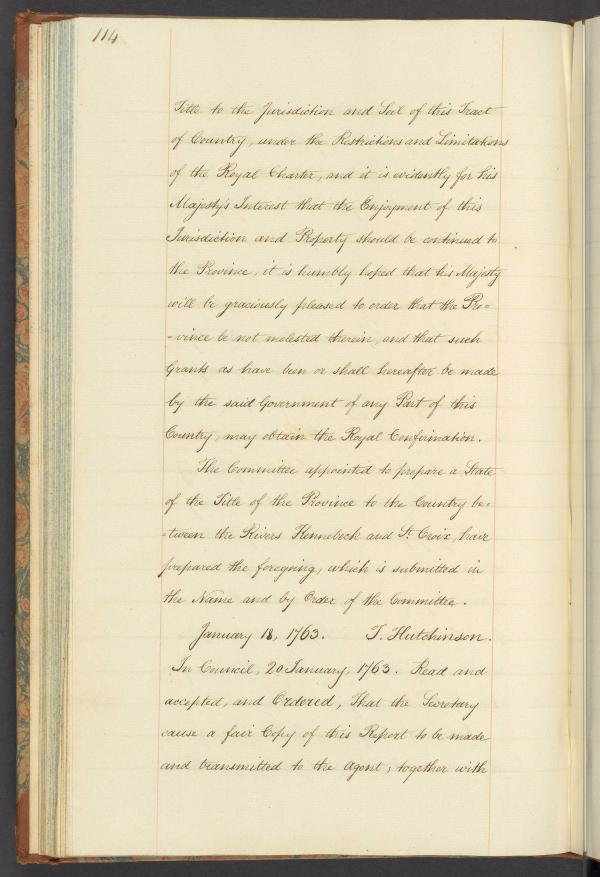 114
Title to the Jurisdiction and Soil of this Tract
of Country, under the Restrictions and Limitations
of the Royal Charter, and it is evidently for his
Majesty's Interest that the Enjoyment of this
Jurisdiction and Property should be continued to
the Province, it is humbly hoped that his Majesty
will be graciously pleased to order that the Pro=
=vince be not molested therein, and that such
Grants as have been or shall hereafter be made
by the said Government of any Part of this
Country, may obtain the Royal Confirmation.
The Committee appointed to prepare a State
of the Title of the Province to the Country be=
=tween the Rivers Kennebeck and St. Croix, have
prepared the foregoing, which is submitted in
the Name and by Order of the Committee.
January 18, 1763. T. Hutchinson.
In Council, 20 January, 1763. Read and
accepted, and Ordered, That the Secretary
cause a fair Copy of this Report to be made
and transmitted to the Agent; together with